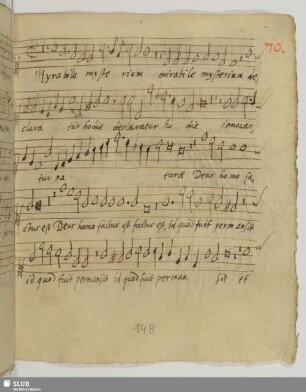 70.
Myrabile mysterium mirabile mysterium de
claratur hodie declaratur hodie innouan
tur naturae Deus homo fa
ctus est Deus homo factus est factus est, id quod fuit permansit
id quod fuit permansit id quod fuit permansit et
148
SLUB